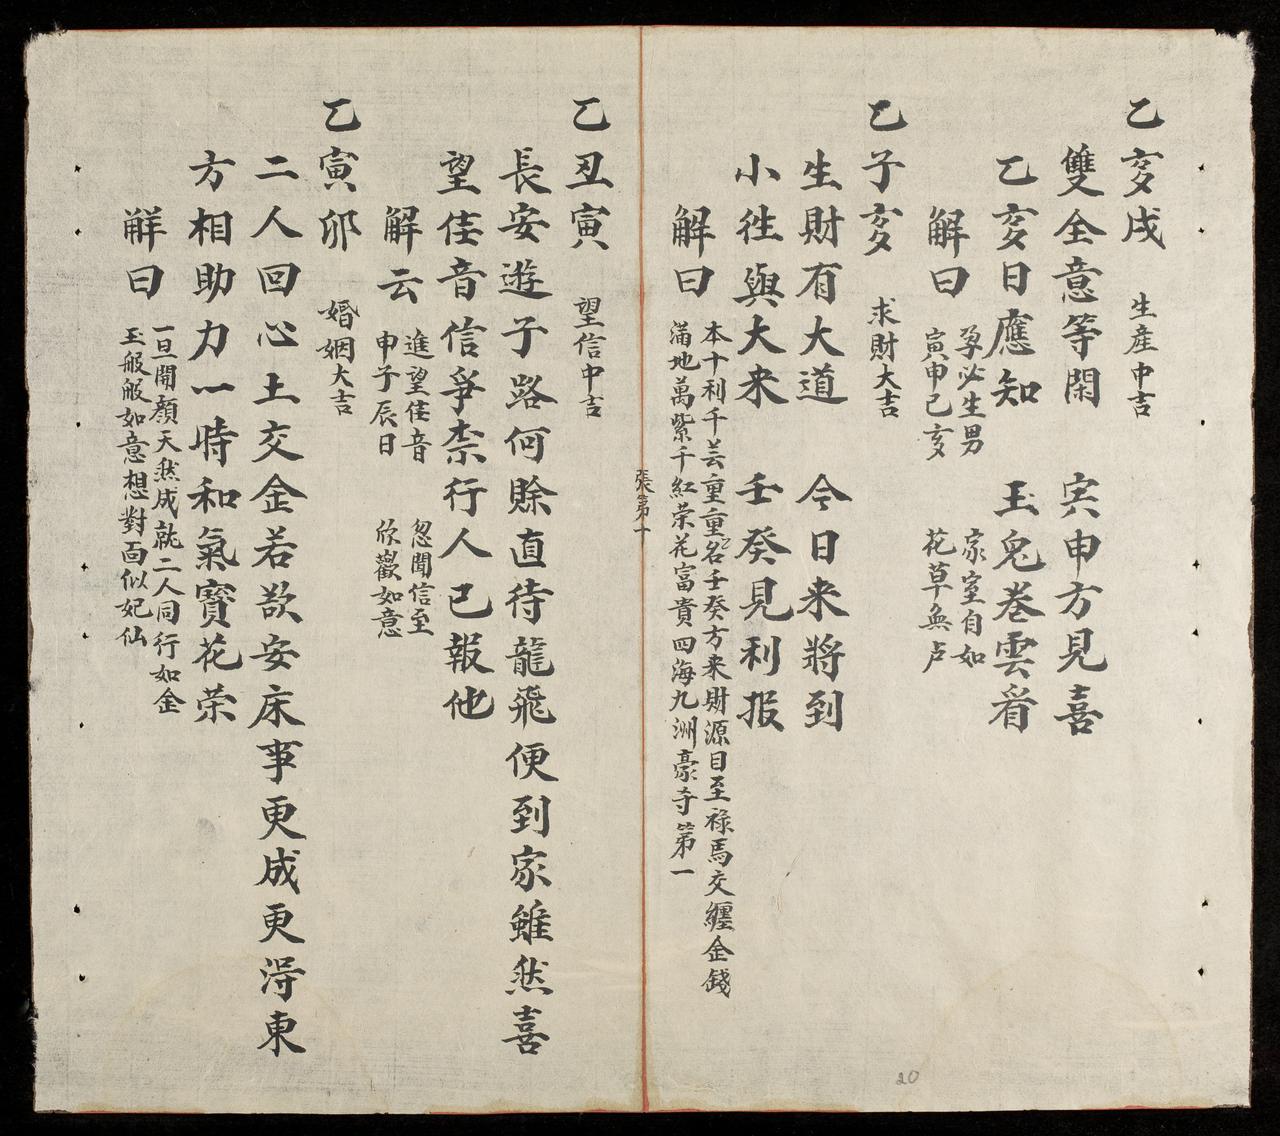 乙亥戌 生産中吉
雙全意等閑 寅申方見喜
乙亥日應知 玉兔卷雲看
解曰 孕必生男 家室自如
寅申己亥 花草無卢
乙子亥 求財大吉
生財有大道 今日来將到
小徃與大来 壬癸見利报
解曰 本十利千芸重重名壬癸方来財源目至禄馬交纏金錢
滿地萬紫千紅荣花富貴四海九洲豪寺第一
張第一
乙丑寅 望信中吉
長安遊子路何賖直待龍飛便到家雖然喜
望佳音信爭柰行人已報他
解云 進望佳音 忽聞信至
申子辰日 欣歡如意
乙寅卯 婚姻大吉
二人回心土交金若欲安床事更成更淂東
方相助力一時和氣寶花荣
解曰 一旦開顔天然成就二人同行如金
玉般般如意想對面似妃仙
20